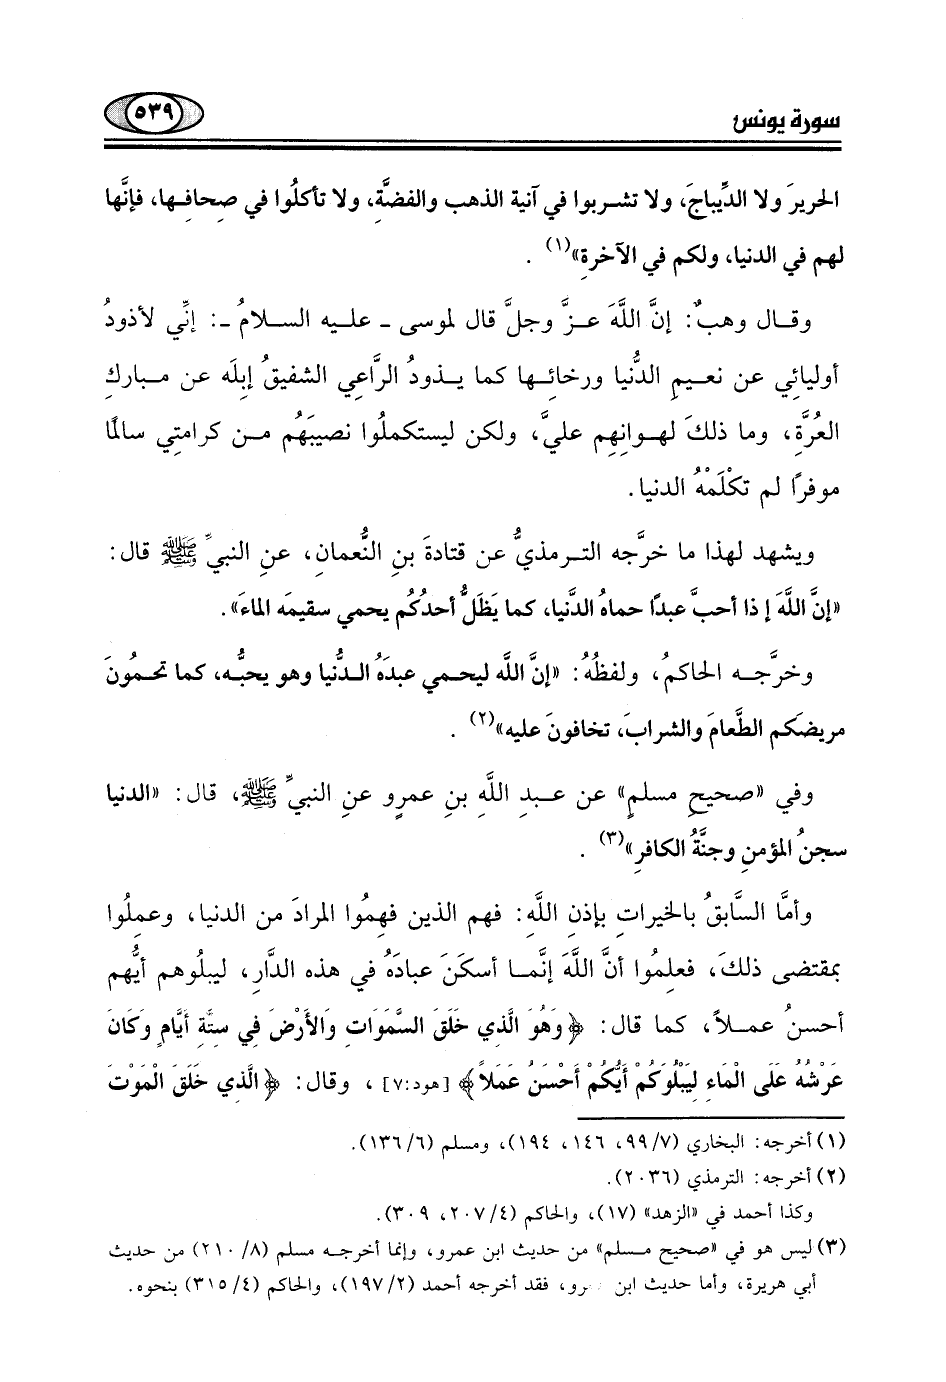 سورة يونس
٥٣٩
الحريرَ ولا الدِّيباجَ، ولا تشربوا في آنية الذهب والفضَّة، ولا تأكلُوا في صِحافِها، فإنَّها
لهم في الدنيا، ولكم في الآخرةِ»(١) .
وقال وهبٌ: إنَّ اللَّهَ عزَّ وجلَّ قال لموسى ـ عليه السلامُ ـ: إنِّي لأذودُ
أوليائِي عن نعيمِ الدُّنيا ورخائِها كما يذودُ الرَّاعِي الشفيقُ إبلَه عن مباركِ
العُرَّةِ، وما ذلكَ لهوانِهم عليَّ، ولكن ليستكملُوا نصيبَهُم من كرامتِي سالمًا
موفرًا لم تكْلَمْهُ الدنيا.
ويشهد لهذا ما خرَّجه الترمذيُّ عن قتادةَ بنِ النُّعمانِ، عنِ النبيِّ ﷺ قال:
«إنَّ اللَّهَ إذا أحبَّ عبدًا حماهُ الدَّنيا، كما يَظَلُّ أحدُكُم يحمي سقيمَه الماءَ».
وخرَّجه الحاكمُ، ولفظُهُ: «إنَّ الله ليحمي عبدَهُ الدُّنيا وهو يحبُّه، كما تحمُونَ
مريضَكم الطَّعامَ والشرابَ، تخافونَ عليه»(٢) .
وفي «صحيحِ مسلمٍ» عن عبدِ اللَّهِ بنِ عمرٍو عنِ النبيِّ ﷺ، قال: «الدنيا
سجنُ المؤمنِ وجنَّةُ الكافرِ»(٣) .
وأمَّا السَّابقُ بالخيراتِ بإذنِ اللَّهِ: فهم الذين فهِمُوا المرادَ من الدنيا، وعملُوا
بمقتضى ذلكَ، فعلِمُوا أنَّ اللَّهَ إنَّما أسكنَ عبادَهُ في هذه الدَّارِ، ليبلُوهم أيُّهم
أحسنُ عملاً، كما قال: ﴿وَهُوَ الَّذِي خَلَقَ السَّمَوَاتِ وَالأَرْضَ فِي سِتَّةِ أَيَّامٍ وَكَانَ
عَرْشُهُ عَلَى الْمَاءِ لِيَبْلُوَكُمْ أَيُّكُمْ أَحْسَنُ عَمَلاً﴾ [هود:٧] ، وقال: ﴿الَّذِي خَلَقَ الْمَوْتَ
(١) أخرجه: البخاري (٩٩/٧، ١٤٦، ١٩٤)، ومسلم (١٣٦/٦).
(٢) أخرجه: الترمذي (٢٠٣٦).
وكذا أحمد في «الزهد» (١٧)، والحاكم (٢٠٧/٤، ٣٠٩).
(٣) ليس هو في «صحيح مسلم» من حديث ابن عمرو، وإنما أخرجه مسلم (٢١٠/٨) من حديث
أبي هريرة، وأما حديث ابن رو، فقد أخرجه أحمد (١٩٧/٢)، والحاكم (٣١٥/٤) بنحوه.